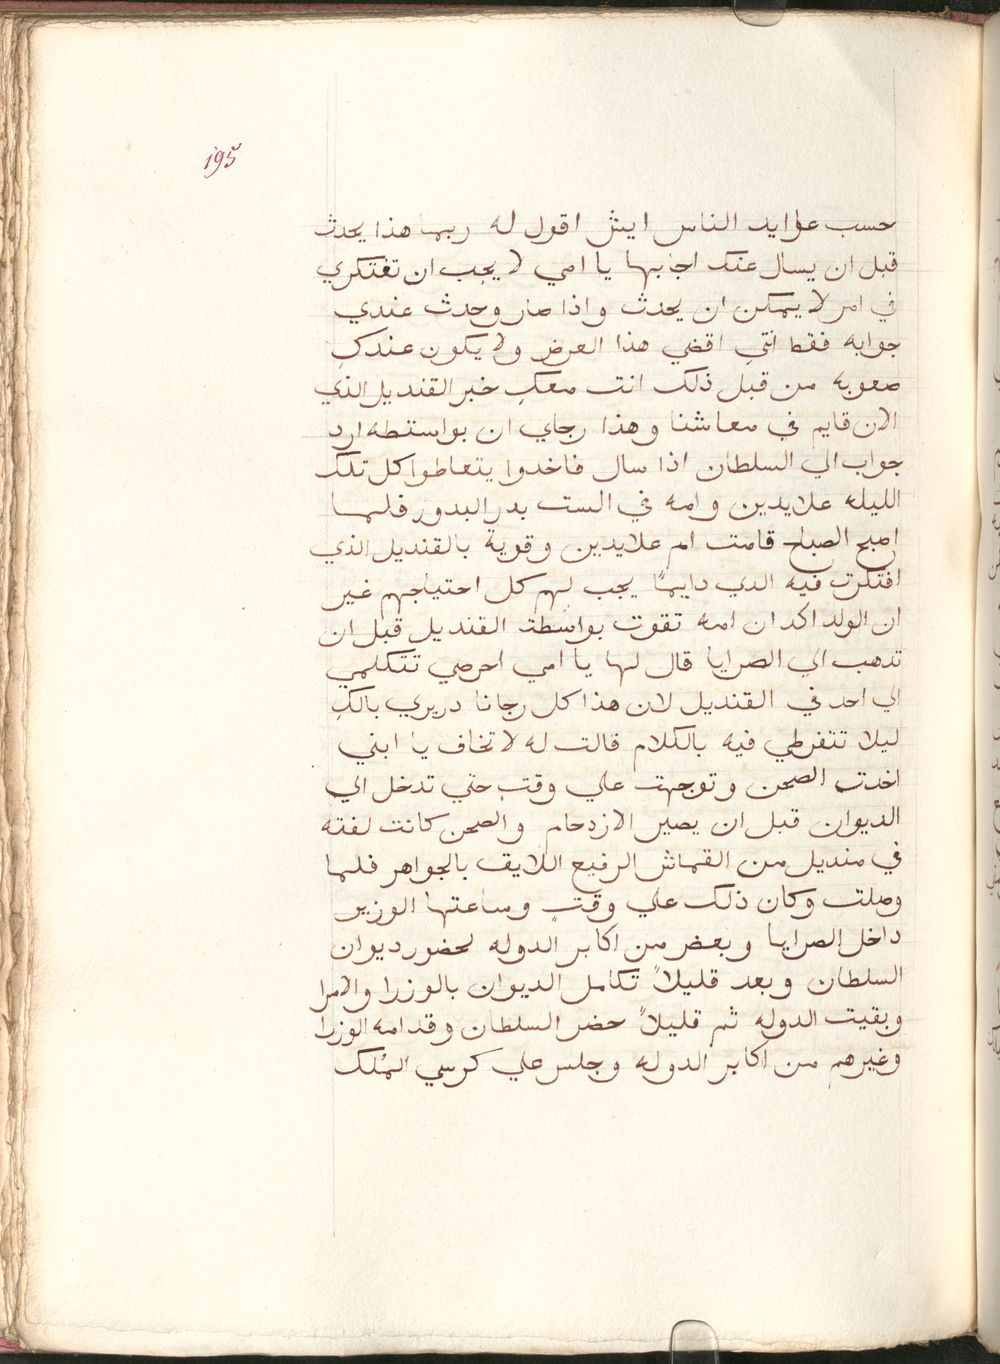 195
حسب عوايد الناس ايش اقول له ربما هذا يحدث
قبل ان يسال عنك اجابها يا امي لا يجب ان تفتكري
في امر لا يمكن ان يحدث واذا صار وحدث عندي
جوابه فقط انتي اقضي هذا الغرض ولا يكون عندكِ
صعوبه من قبل ذلك انت معكِ خبر القنديل الذي
الان قايم في معاشنا وهذا رجاي ان بواسطه ارد
جواب الي السلطان اذا سال فاخدوا يتعاطوا كل تلك
الليله علايدين وامه في الست بدر البدور فلما
اصبح الصباح قامت ام علايدين وقوية بالقنديل الذي
افتكرت فيه الدي دايماً يجب لهم كل احتياجهم غير
ان الولد اكد ان امه تقوت بواسطة القنديل قبل ان
تدهب الي الصرايا قال لها يا امي احرصي تتكلمي
الي احد في القنديل لان هذا كل رجانا دريري بالكِ
ليلا تتفرطي فيه بالكلام قالت له لا تخاف يا ابني
اخدت الصحن وتوجهت علي وقت حتي تدخل الي
الديوان قبل ان يصير الازدحام والصحن كانت لفته
في منديل من القماش الرفيع اللايق بالجواهر فلما
وصلت وكان ذلك علي وقتٍ وساعتها الوزير
داخل الصرايا وبعض من اكابر الدوله لحضور ديوان
السلطان وبعد قليلاً تكامل الديوان بالوزرا والامرا
وبقيت الدوله ثم قليلاً حضر السلطان وقدامه الوزرا
وغيرهم من اكابر الدوله وجلس علي كرسي المُلك